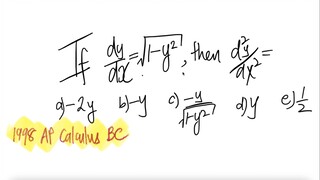 If dy/dx = √1-y², then d²y/dx² =
a) -2y b) -y c) -y/√1-y² d) y e) 1/2
1998 AP Calculus BC